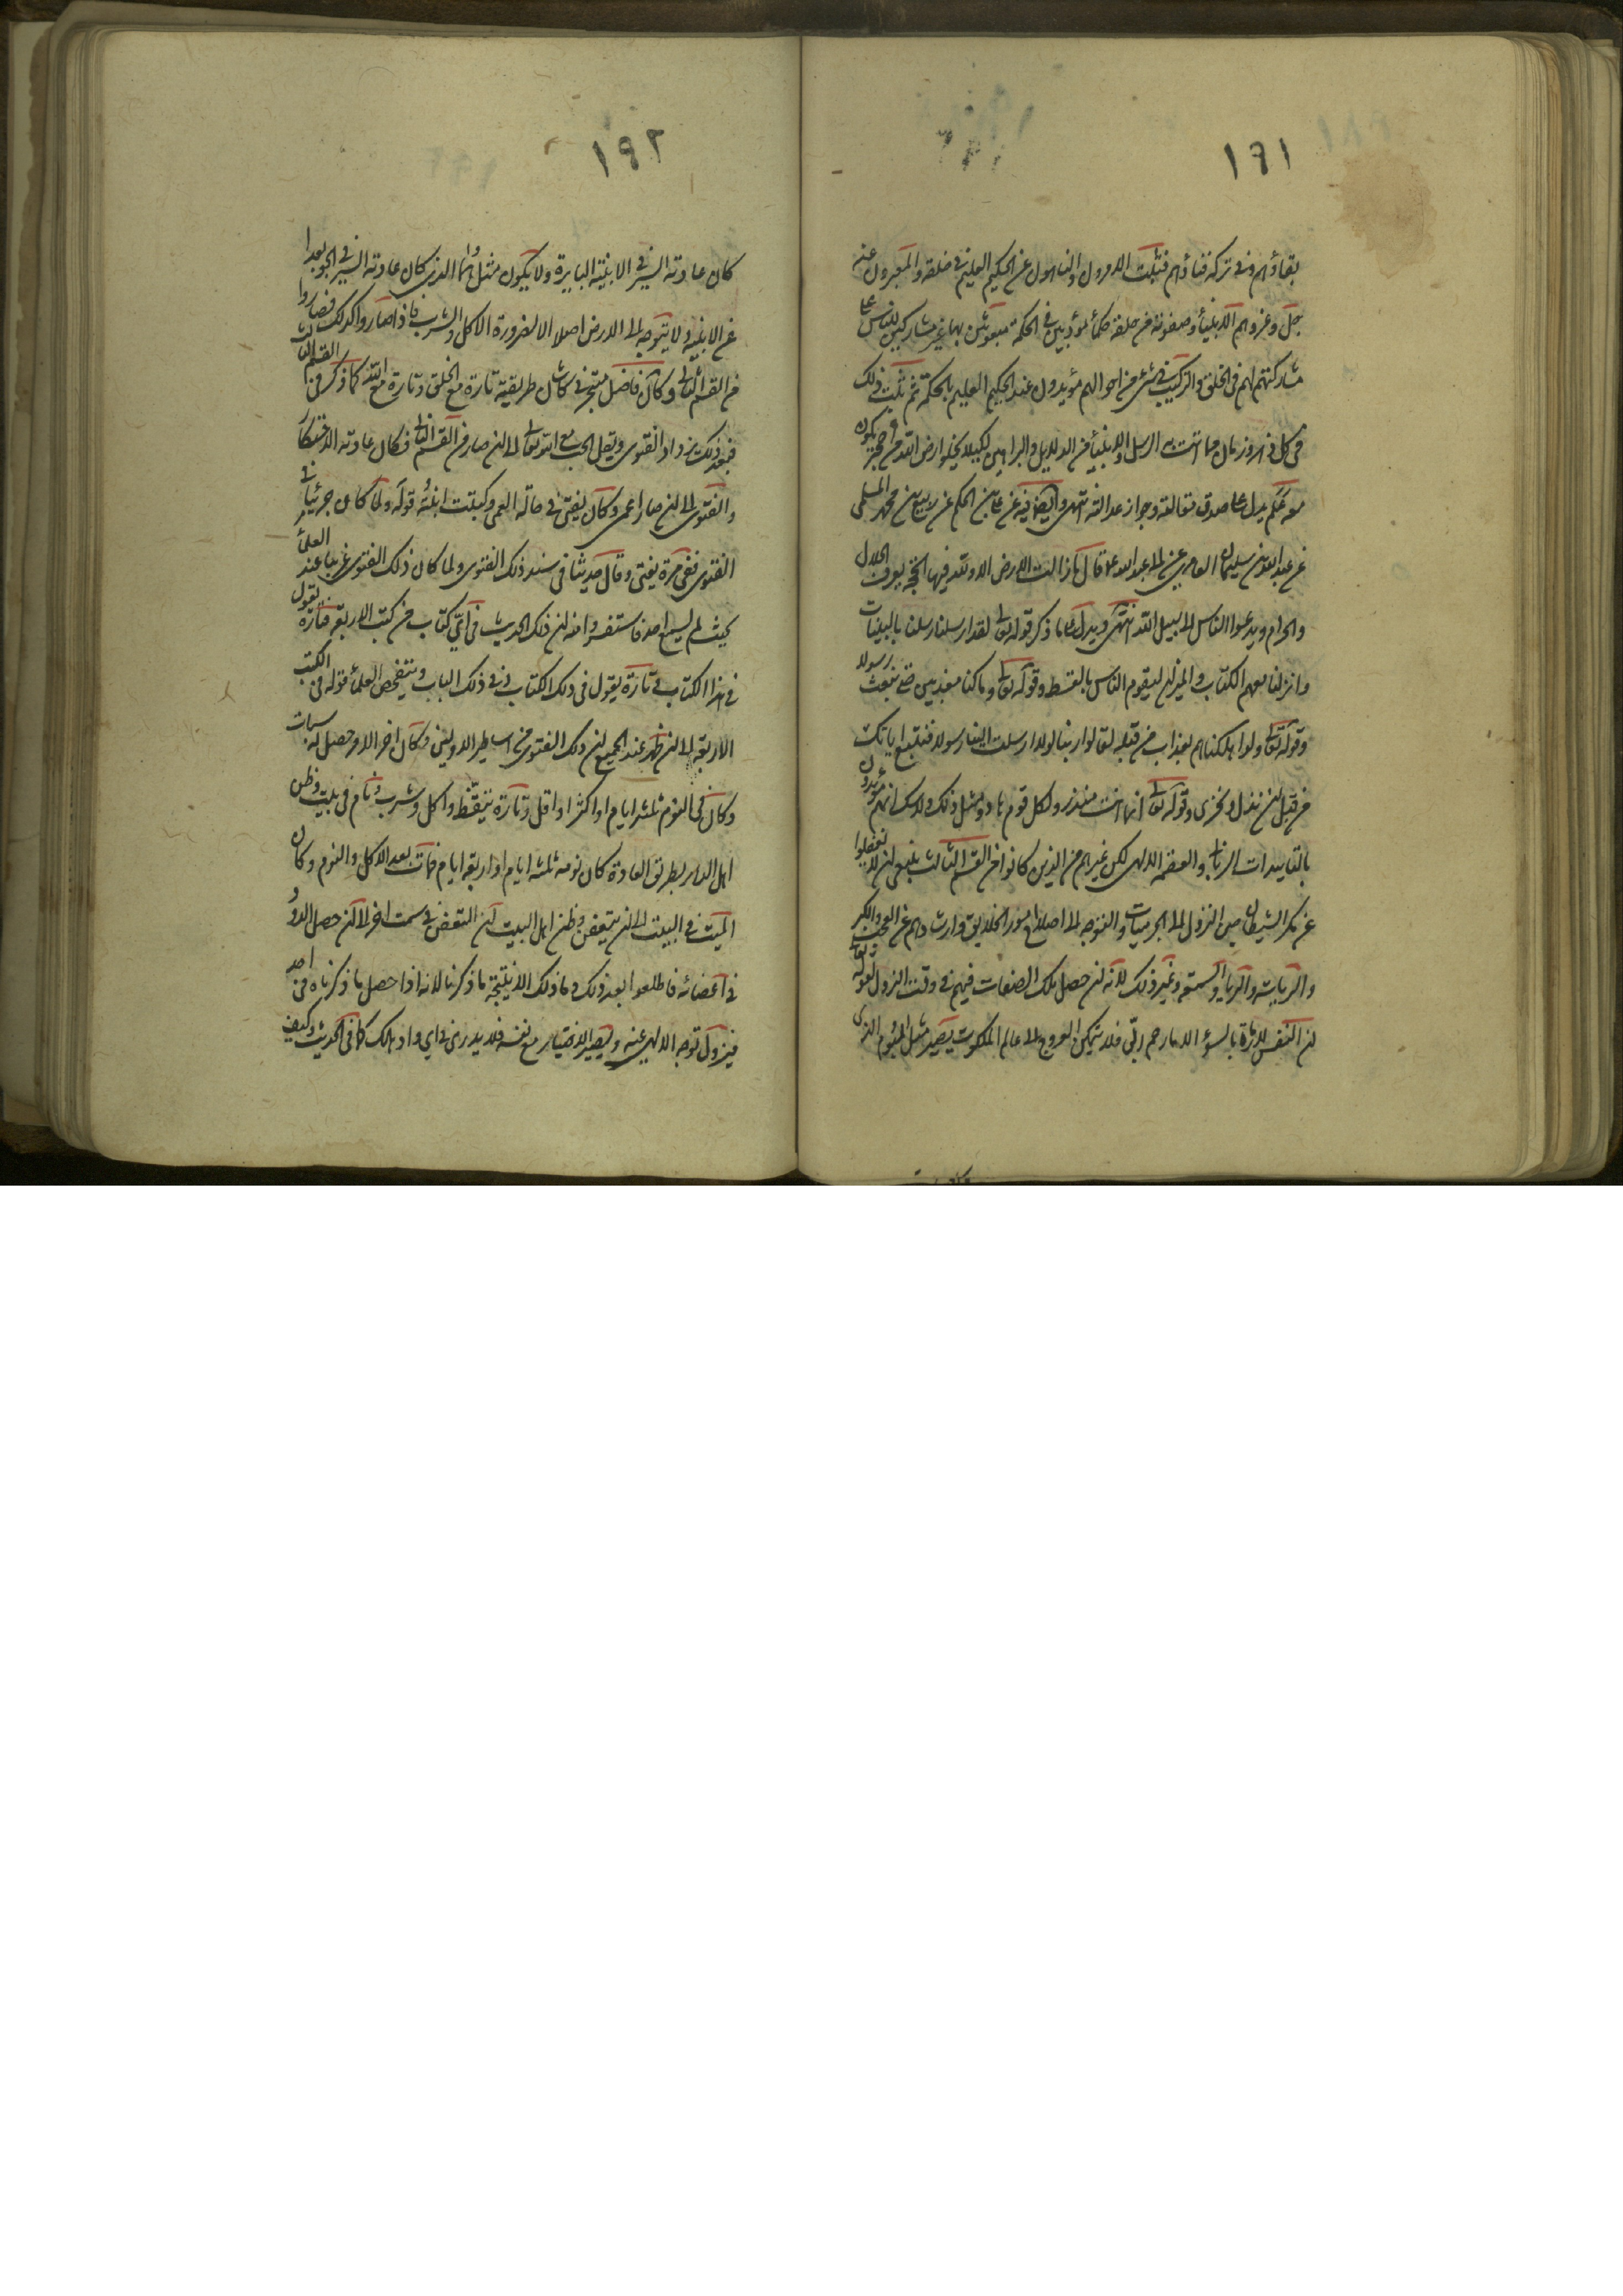 ١٩١
بقاؤهم وفي تركه فناؤهم فثبت الآمرون والناهون عن الحكيم العليم في خلقه والمعبرون عنه
جل وعز وهم الانبياء وصفوته من خلقه حكماء مؤدبين في الحكمة مبعوثين بها غير مشاركين للناس على
مشاركتهم لهم في الخلق والتركيب في شيء من احوالهم مؤيدون عند الحكيم العليم بالحكمة ثم ثبت ذلك
في كل دهر وزمان مما اتت به الرسل والانبياء من الدلايل والبراهين لكيلا يخلو ارض الله من حجة يكون
معه علم يدل على صدق مقالته وجواز عدالته انتهى وايضا فيه عن علي بن الحكم عن ربيع بن محمد المسلي
عن عبد الله بن سليمان العامري عن ابي عبد الله ع قال ما زالت الارض الا ولله فيها الحجة يعرف الحلال
والحرام ويدعوا الناس الى سبيل الله انتهى ويدل على ما ذكر قوله تعالى لقد ارسلنا رسلنا بالبينات
وانزلنا معهم الكتاب والميزان ليقوم الناس بالقسط وقوله تعالى وما كنا معذبين حتى نبعث رسولا
وقوله تعالى ولو اهلكناهم بعذاب من قبله لقالوا ربنا لولا ارسلت الينا رسولا فنتبع اياتك
من قبل ان نذل ونخزى وقوله تعالى انما انت منذر ولكل قوم هاد ومثل ذلك ولا شك انهم مؤيدون
بالتاييدات الربانية والعصمة الالهي لكن غيرهم من الذين كانوا من القسم الثالث ينبغي ان لا يغفلوا
عن مكر الشيطان حين النزول الى الجزئيات والتوجه الى اصلاح امور الخلايق وارشادهم عن العجب والكبر
والريا والسمعة وغير ذلك لانه ان حصل تلك الصفات فيهم في وقت النزول لقوله تعالى
ان النفس لامارة بالسوء الا ما رحم ربي فلا يتمكن العروج الى عالم الملكوت يصير مثل البوم الذي
١٩٢
كان عادته السير في الابنية البايرة ولا يكون مثل الهما الذي كان عادته السير في الجو بعدا
عن الابنية ولا يتوجه الى الارض اصلا الا لضرورة الاكل والشرب فاذا صاروا كذلك فصاروا
من القسم الثاني وكان فاضل متبحر في كاشان طريقية تارة مع الخلق وتارة مع الله كما ذكر من القسم الثالث
فبعد ذلك يزداد الفتوى ويقل الحب مع الله تعالى الى ان صار من القسم الثاني فكان عادته الافتكار
والفتوى الى ان صار اعمى وكان يفتي في حالة العمى وكتبت ابنته قوله ولما كان جزئيات
الفتوى ففي مرة يفتي وقال حديثا في سند ذلك الفتوى ولما كان ذلك الفتوى غريبا عند العلماء
بحيث لم يسمع احد فاستفسروا منه ان ذلك الحديث في اي كتاب من كتب الاربعة فتارة يقول
في هذا الكتاب وتارة يقول في ذلك الكتاب في ذلك الباب ويتفحص العلماء قوله في الكتب
الاربعة الى ان ظهر عند الجميع ان ذلك الفتوى من اساطير الاولين وكان اخر الامر حصل له سبات
وكان في النوم ثلثة ايام او اكثر او اقل وتارة يتيقظ واكل وشرب ونام في بيت وظن
اهل الدار بطريق العادة كان نومه ثلثة ايام او اربعة ايام فمات بعد الاكل والنوم وكان
الميت في البيت الى ان يتعفن وظن اهل البيت ان التعفن في سمت اخر الى ان حصل الدود
في اعضائه فاطلعوا بعد ذلك وما ذلك الا نتيجة ما ذكرنا لانه اذا حصل ما ذكرناه في احد
فيزول توجه الالهي عنه ويصير الاختيار مع نفسه فلا يدرى في اي واد هلك كما في الحديث وكيف